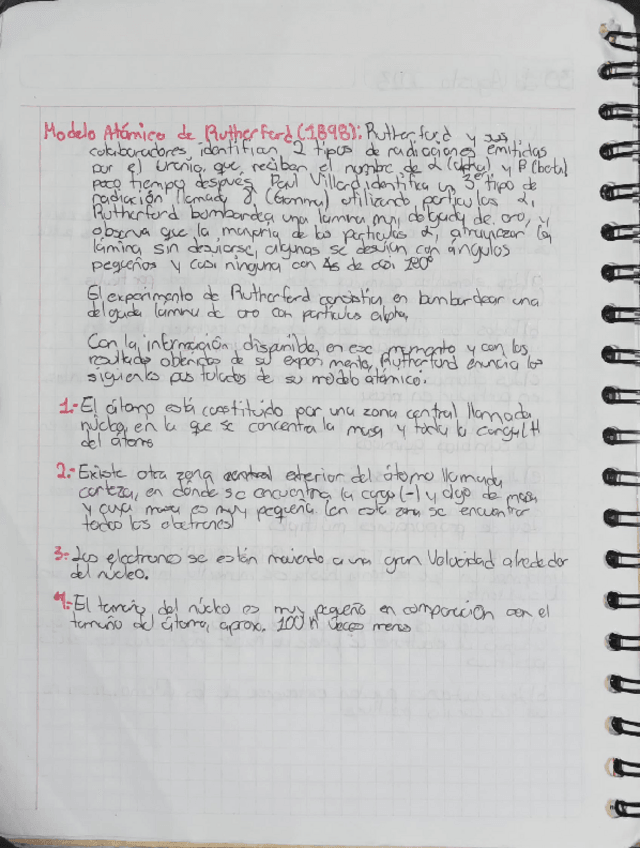 Modelo Atómico de Rutherford (1898): Rutherford y sus
colaboradores identifian 2 tipos de radiaciones emitidas
por el uranio, que reciben el nombre de α (alpha) y β (beta)
poco tiempo después, Paul Villard identifica un 3er tipo de
radiación llamada γ (Gamma) utilizando particulas α,
Rutherford bombardea una lamina muy delgada de oro, y
observa que la mayoria de las particulas α, atraviezan la
lámina sin desviarse, algunas se desvian con ángulos
pequeños y casi ninguna con de casi 180°
El experimento de Rutherford consistia en bombardear una
delgada lamina de oro con particulas alpha,
Con la información disponible, en ese momento y con los
resultados obtenidos de su experimento, Rutherford enuncia los
siguientes postulados de su modelo atómico.
1.- El átomo está constituido por una zona central llamada
núcleo, en la que se concentra la masa y toda la carga (+)
del átomo
2.- Existe otra zona central exterior del átomo llamada
corteza, en dónde se encuentra la carga (-) y algo de masa
y cuya masa es muy pequeña (en esta zona se encuentran
todos los electrones)
3.- Los electrones se están moviendo a una gran velocidad alrededor
del núcleo.
4.- El tamaño del núcleo es muy pequeño en comparación con el
tamaño del átomo, aprox. 100 veces menos